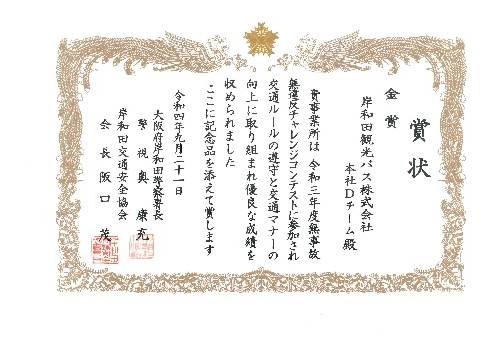 賞状
金賞
岸和田観光バス株式会社
本社Dチーム殿
貴事業所は 令和三年度無事故
無違反チャレンジコンテストに参加され
交通ルールの遵守と交通マナーの
向上に取り組まれ優良な成績を
収められました
ここに記念品を添えて賞します
令和四年九月二十一日
大阪府岸和田警察署長
警視 奥 康充
岸和田交通安全協会
会長 阪口 茂